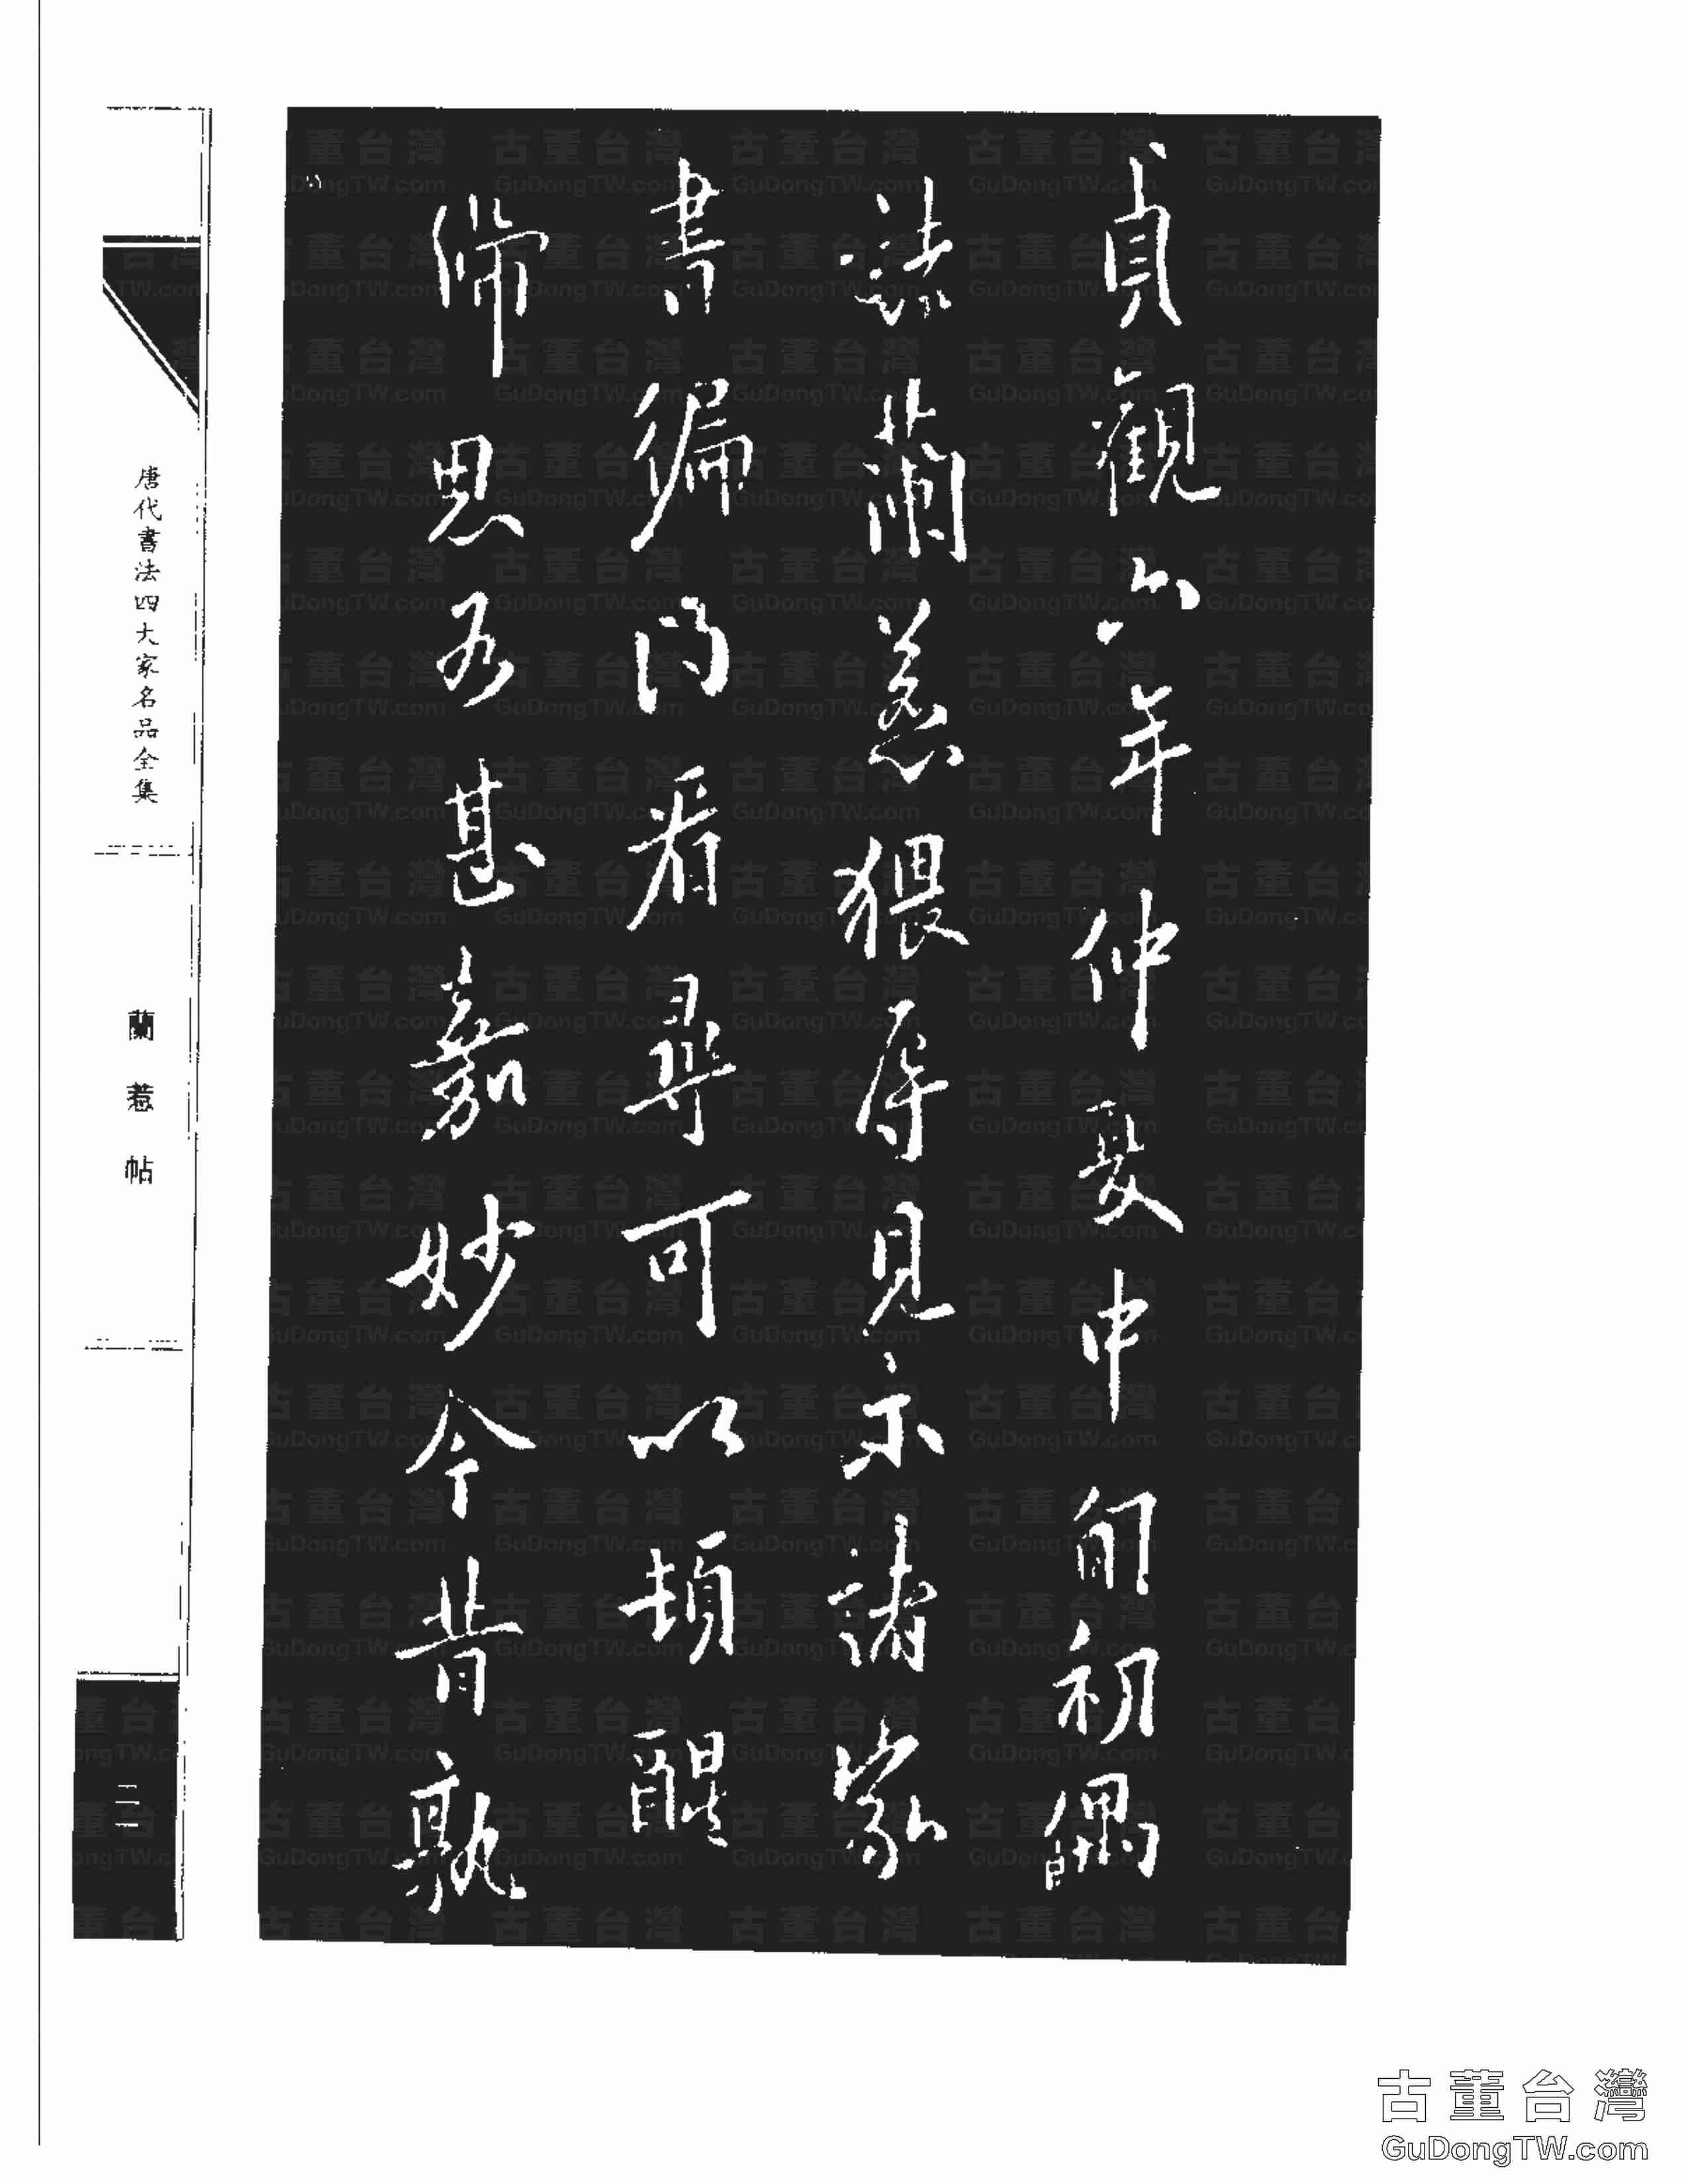 貞觀六年仲夏中旬初偶
蘭惹猥辱見示諸家
書徧得看尋可以頓醒
滯思甚嘉妙今昔孰
唐代書法四大家名品全集
蘭惹帖
二一
古董台灣
GuDongTW.com